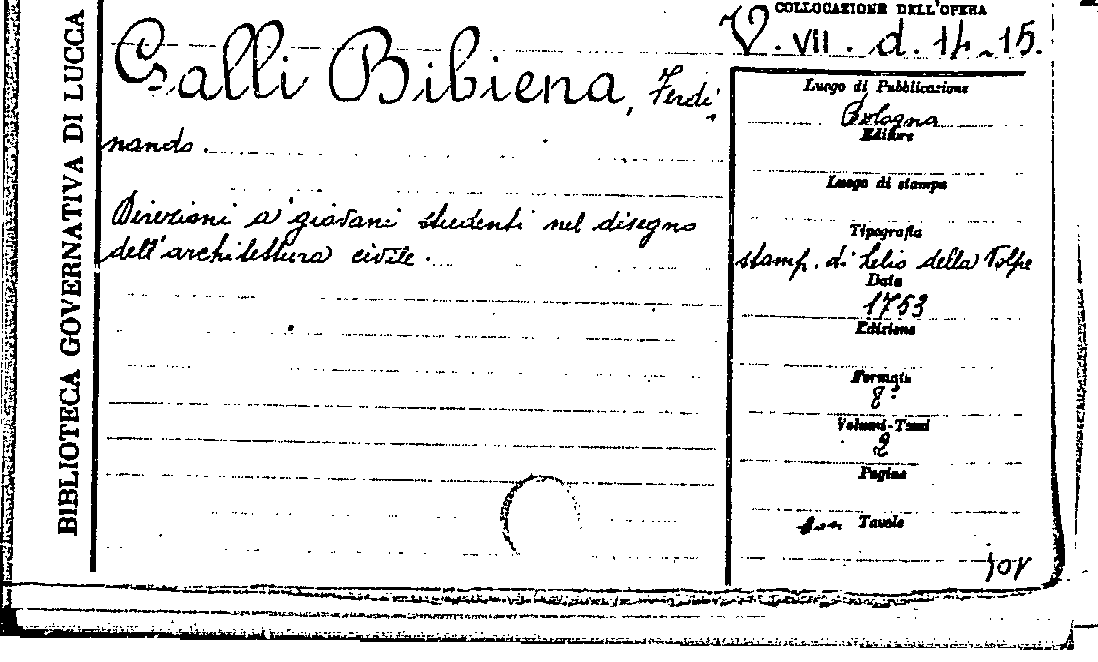 BIBLIOTECA GOVERNATIVA DI LUCCA
COLLOCAZIONE DELL'OPERA
V. VII. d. 14-15.
Galli Bibiena, Ferdi
nando.
Direzioni a' giovani studenti nel disegno
dell'architettura civile.
Luogo di Pubblicazione
Bologna
Editore
Luogo di stampa
Tipografia
stamp. di Lelio della Volpe
Data
1753
Edizione
Formato
8°
Volumi-Tomi
2
Pagine
con Tavole